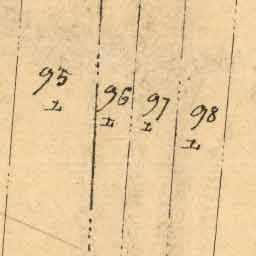 95 96 97 98
L L L L